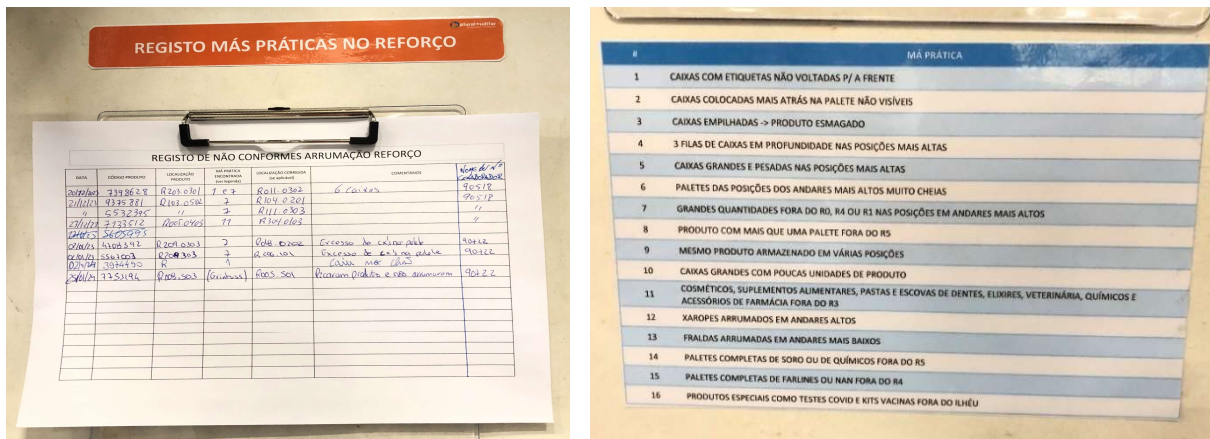 REGISTO MÁS PRÁTICAS NO REFORÇO
REGISTO DE NÃO CONFORMES ARRUMAÇÃO REFORÇO
DATA CÓDIGO PRODUTO LOCALIZAÇÃO PRODUTO MÁ PRÁTICA ENCONTRADA (ver legenda) LOCALIZAÇÃO CORRIGIDA (se aplicável) COMENTÁRIOS Nome ou Nº COLABORADOR
7398628 R203.0301 1 e 7 R011.0302 6 Caixas 90518
9375881 R103.0502 7 R104.0201 90518
" 5532395 " 7 R111.0303 "
7133512 R005.0403 11 R304.0103 "
5605995
4708392 R209.0303 7 Excesso de 90422
5567003 7 Excesso de 90422
3974490 R 1
7753194 R008.503 R005.501 Picaram produto e não arrumaram 90422
# MÁ PRÁTICA
1 CAIXAS COM ETIQUETAS NÃO VOLTADAS P/ A FRENTE
2 CAIXAS COLOCADAS MAIS ATRÁS NA PALETE NÃO VISÍVEIS
3 CAIXAS EMPILHADAS -> PRODUTO ESMAGADO
4 3 FILAS DE CAIXAS EM PROFUNDIDADE NAS POSIÇÕES MAIS ALTAS
5 CAIXAS GRANDES E PESADAS NAS POSIÇÕES MAIS ALTAS
6 PALETES DAS POSIÇÕES DOS ANDARES MAIS ALTOS MUITO CHEIAS
7 GRANDES QUANTIDADES FORA DO R0, R4 OU R1 NAS POSIÇÕES EM ANDARES MAIS ALTOS
8 PRODUTO COM MAIS QUE UMA PALETE FORA DO R5
9 MESMO PRODUTO ARMAZENADO EM VÁRIAS POSIÇÕES
10 CAIXAS GRANDES COM POUCAS UNIDADES DE PRODUTO
11 COSMÉTICOS, SUPLEMENTOS ALIMENTARES, PASTAS E ESCOVAS DE DENTES, ELIXIRES, VETERINÁRIA, QUÍMICOS E
ACESSÓRIOS DE FARMÁCIA FORA DO R3
12 XAROPES ARRUMADOS EM ANDARES ALTOS
13 FRALDAS ARRUMADAS EM ANDARES MAIS BAIXOS
14 PALETES COMPLETAS DE SORO OU DE QUÍMICOS FORA DO R5
15 PALETES COMPLETAS DE FARLINES OU NAN FORA DO R4
16 PRODUTOS ESPECIAIS COMO TESTES COVID E KITS VACINAS FORA DO ILHÉU